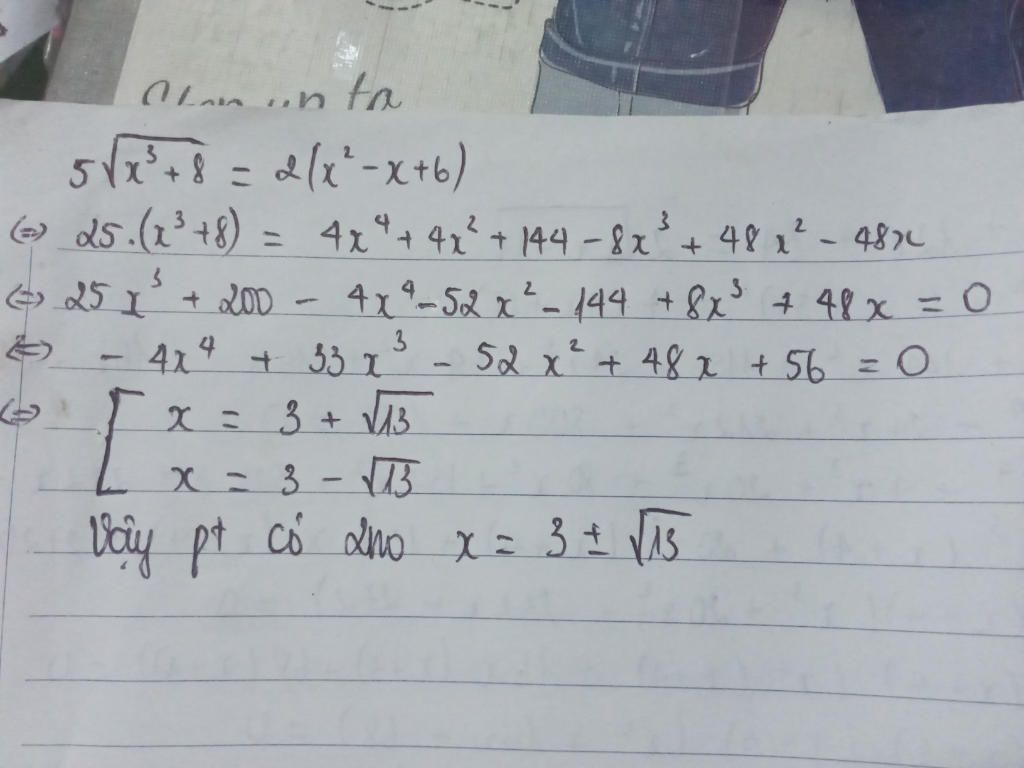 5√(x³+8) = 2(x²-x+6)
(=) 25.(x³+8) = 4x⁴ + 4x² + 144 - 8x³ + 48x² - 48x
(=) 25x³ + 200 - 4x⁴ - 52x² - 144 + 8x³ + 48x = 0
(=) - 4x⁴ + 33x³ - 52x² + 48x + 56 = 0
(=) [ x = 3 + √13
x = 3 - √13
Vậy pt có 2no x = 3 ± √13